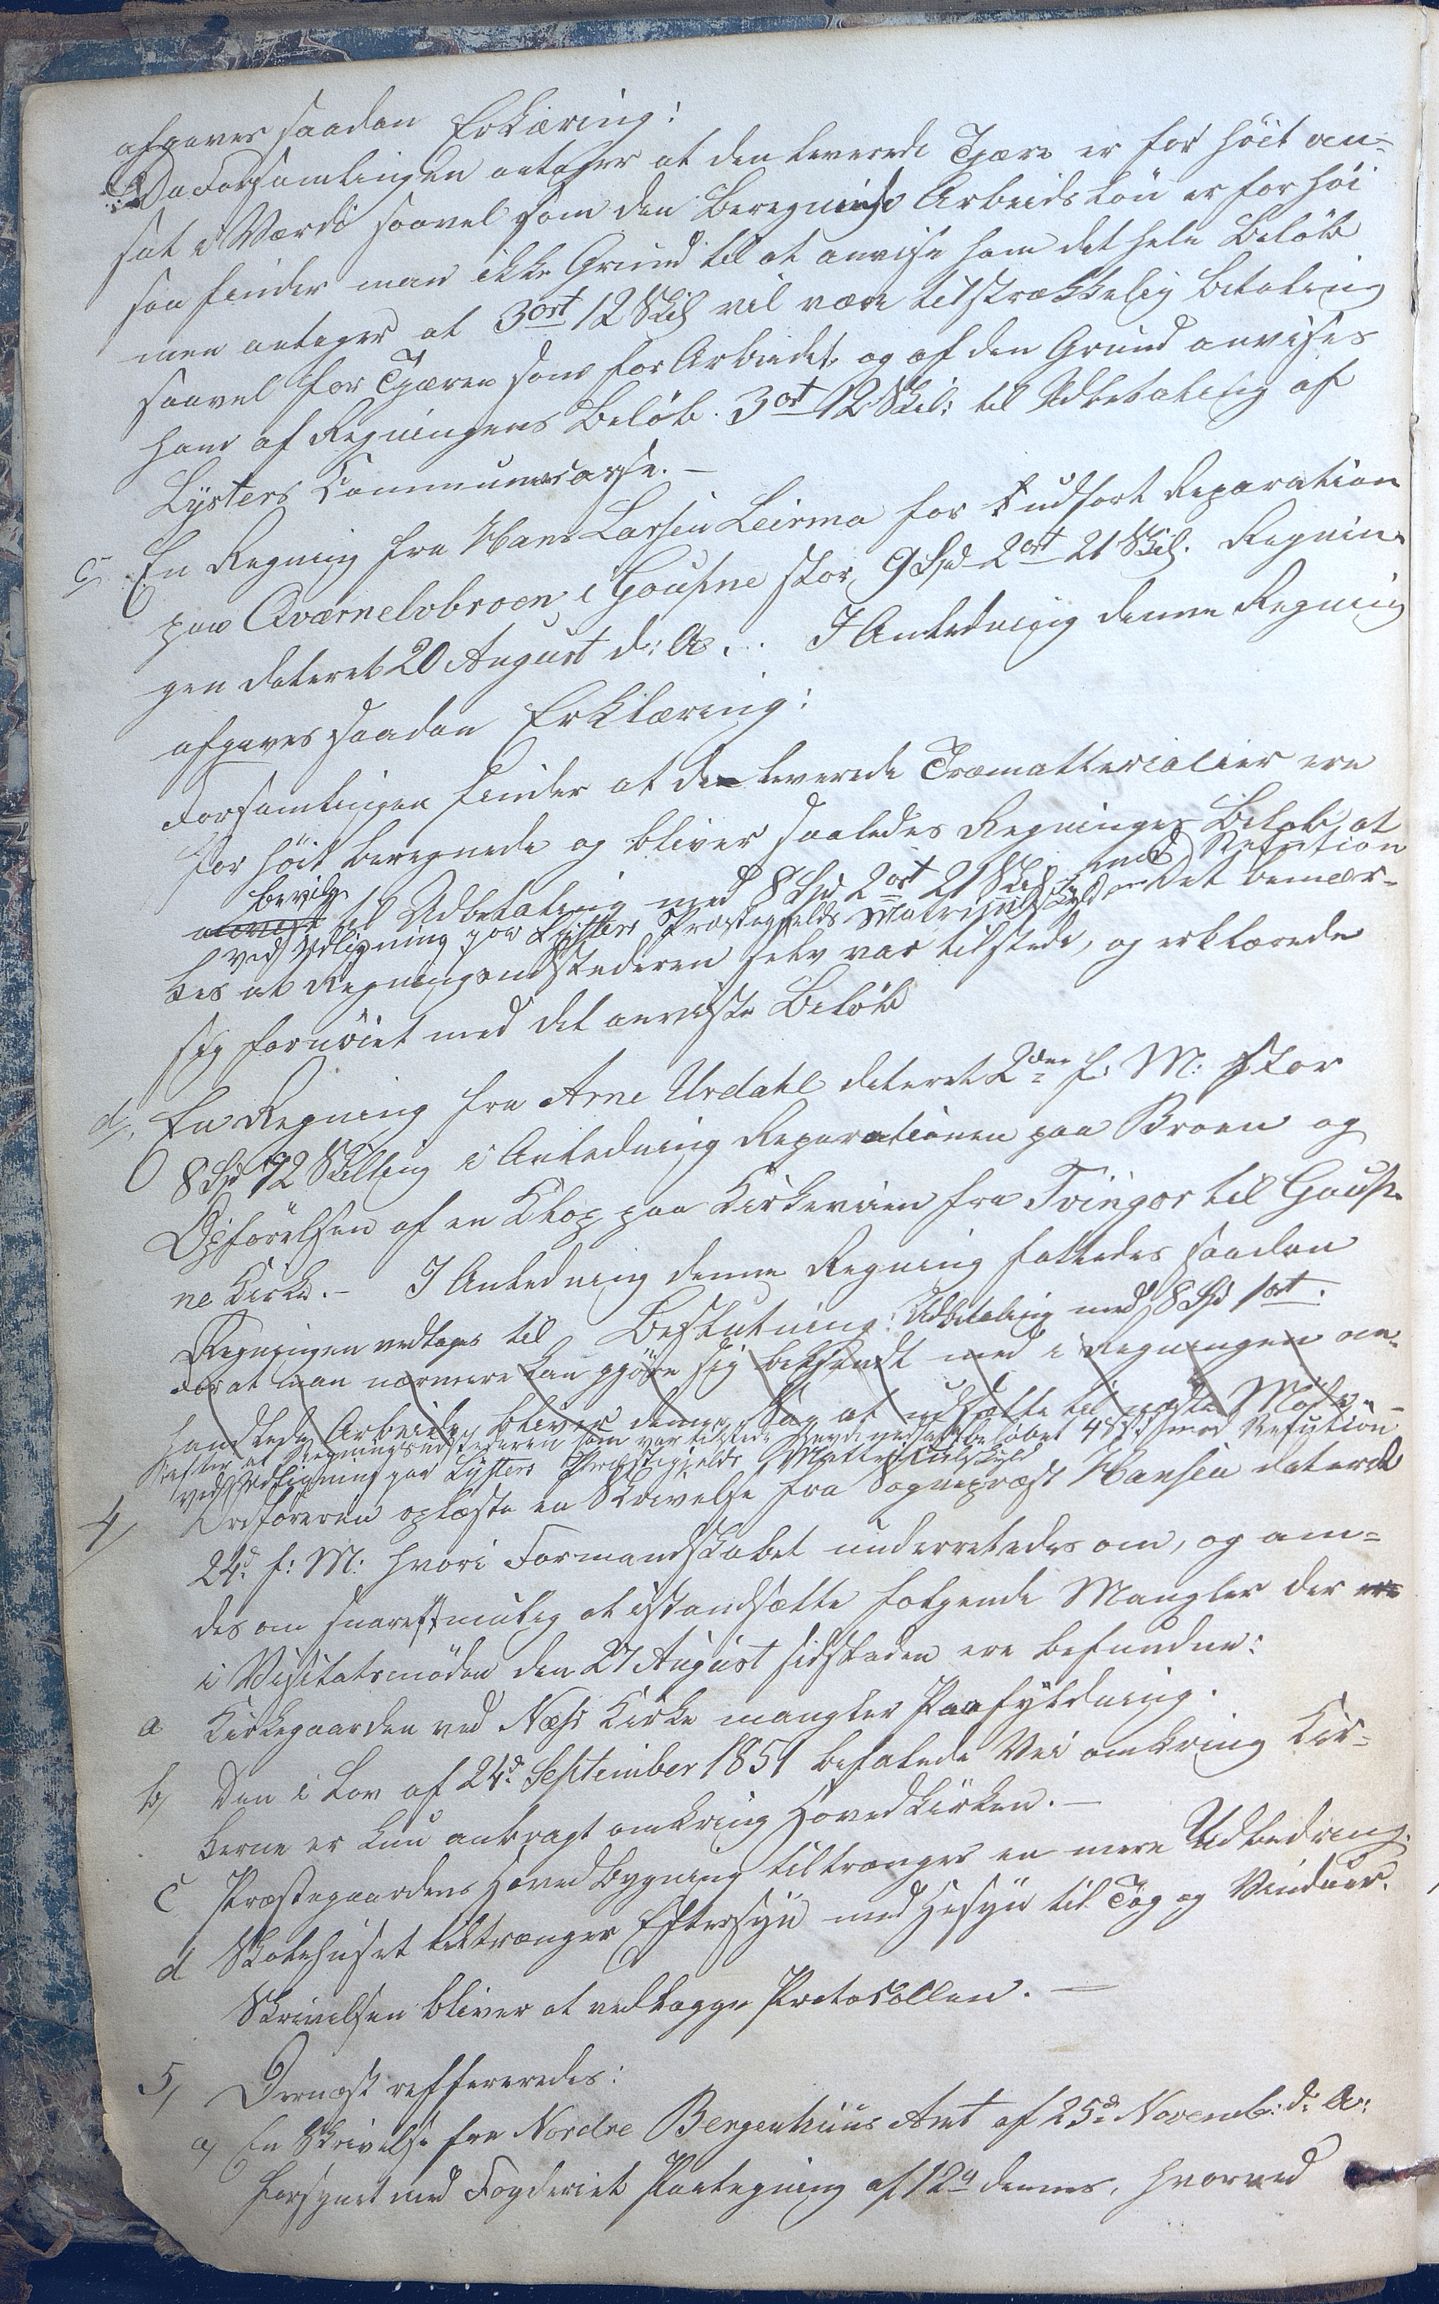 afgaves saadan Erklæring:
Da Forsamlingen antager at den leverede Tjære er for høit an-
sat i Værdi saavel som den beregnede Arbeidsløn er for høi
saa finder man ikke Grund til at anvise ham det hele Beløb
men antager at 3ort 12 Skil vil være tilstrækkelig betaling
saavel for Tjæren som for Arbeidet, og af den Grund anvises
ham af Regningens Beløb 3ort 12 Skil: til Udbetaling af
Lysters Communecasse. —
c, En Regning fra Hans Larsen Leirmo for udført Reparation
paa Qværnelvbroen i Goupne stor, 9 Spd 2ort 21 Skil. Regnin-
gen dateret 20 August d: A. I Anledning denne Regning
afgaves saadan Erklæring:
Forsamlingen finder at de leverede Træmatterialier ere
for høit beregnede og bliver saaledes Regninges Beløb at
bevilge
anvist til Udbetaling med 8 Spd 2ort 21 Skil med Refution
ved Udligning paa Lysters Præstegjelds Matrikulskyld Det bemær-
kes at Regningsudstederen selv var tilstede, og erklærede
sig fornøiet med det anviste Beløb
d, En Regning fra Arne Urdahl dateret 2den f: M: stor
8 Spd 72 Skilling i Anledning Reparationen paa Broen og
Opførelsen af en Klop paa Kirkeveien fra Tvinger til Goup-
ne Kirke. — I Anledning denne Regning fattedes saadan
Regningen vedtages til Beslutning: Udbetaling med 8 Spd 1ort.
For at man nærmere kan gjøre sig bekjendt med i Regningen om-
handlede Arbeide, bliver denne Sag at udsætte til næste Møde. —
efter at Regningsudstederen som var tilstede havde nedsat Beløbet 48 s med Refution
ved Udligning paa Lysters Præstegjelds Mattrikulskyld
4, Ordføreren oplæste en Skrivelse fra Sognepræst Hansen dateret
24d f: M: hvori Formandskabet underrettedes om, og an-
des om snarest mulig at istandsætte følgende Mangler der ere
i Visitatsmøden den 27 August sidstleden ere befundne:
a Kirkegaarden ved Næss Kirke mangler Paafyldning.
b, Den i Lov af 24d September 1851 befalede Vei omkring Kir-
kerne er kun anbragt omkring Hovedkirken. —
c Præstegaardens Hovedbygning tiltrænger en mere Udbedring.
d Skolehuset tiltrænger Eftersyn med Hesyn til Tag og Vinduer.
Skrivelsen bliver at vedlægge Protocollen. —
5, Dernæst reffereredes:
a, En Skrivelse fra Nordre Bergenhuus Amt af 25d Novemb: d: A:
forsynet med Fogderiet Paategning af 12d dennes, hvorved